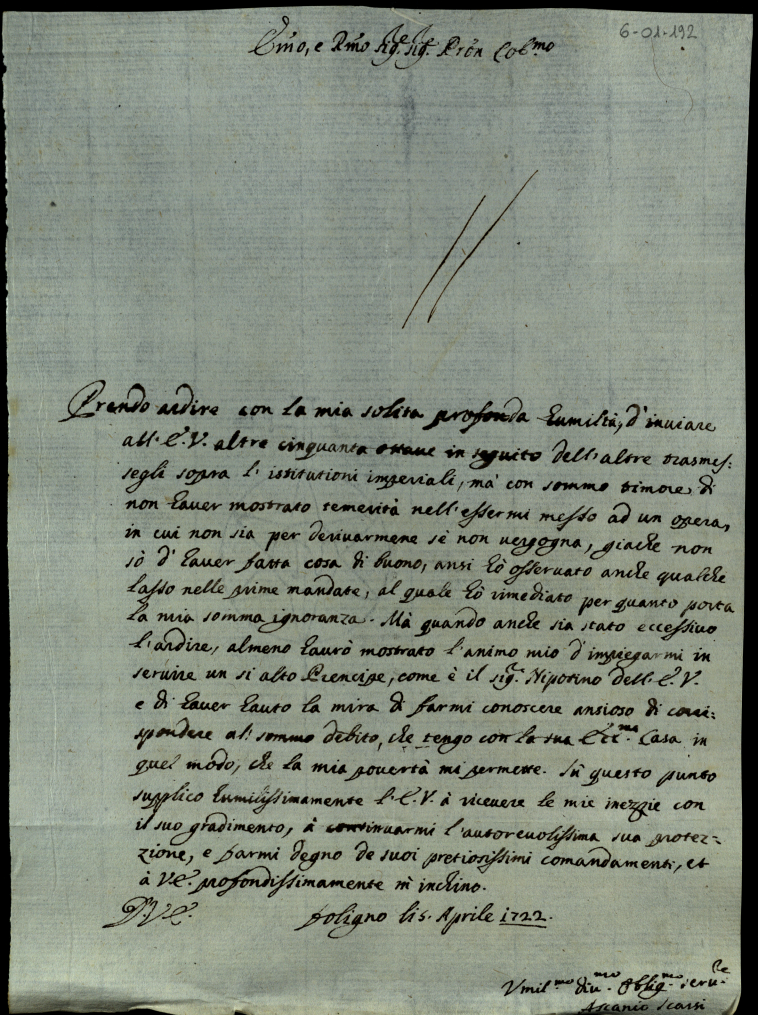 6-01-192
Em̃o, e Rm̃o Sig.re Sig.re Prõn Col.mo
Prendo ardire con la mia solita profonda humiltà, d'inviare
all'E.V. altre cinquanta ottave in seguito dell'altre trasmes:
segli sopra l'istitutioni imperiali, mà con sommo timore di
non haver mostrato temerità nell'essermi messo ad un opera,
in cui non sia per derivarmene se non vergogna, giache non
sò d'haver fatta cosa di buono, ansi hò osservato anche qualche
lasso nelle prime mandate, al quale hò rimediato per quanto porta
la mia somma ignoranza. Mà quando anche sia stato eccessivo
l'ardire, almeno haurò mostrato l'animo mio d'impiegarmi in
servire un si alto Prencipe, come è il sig.r Nipotino dell'E.V.
e di haver hauto la mira di farmi conoscere ansioso di corri:
spondere al sommo debito, che tengo con la sua Ecc.ma Casa in
quel modo, che la mia povertà mi permette. Sù questo punto
supplico humilissimamente l'E.V. à ricevere le mie inezzie con
il suo gradimento, à continuarmi l'autorevolissima sua protez:
zione, e farmi degno de suoi pretiosissimi comandamenti, et
à V.E. profondissimamente m'inchino.
D.V.E. Foligno li 5. Aprile 1722.
Vmil.mo diu.mo Oblig.mo seru.re
Ascanio Scarsi